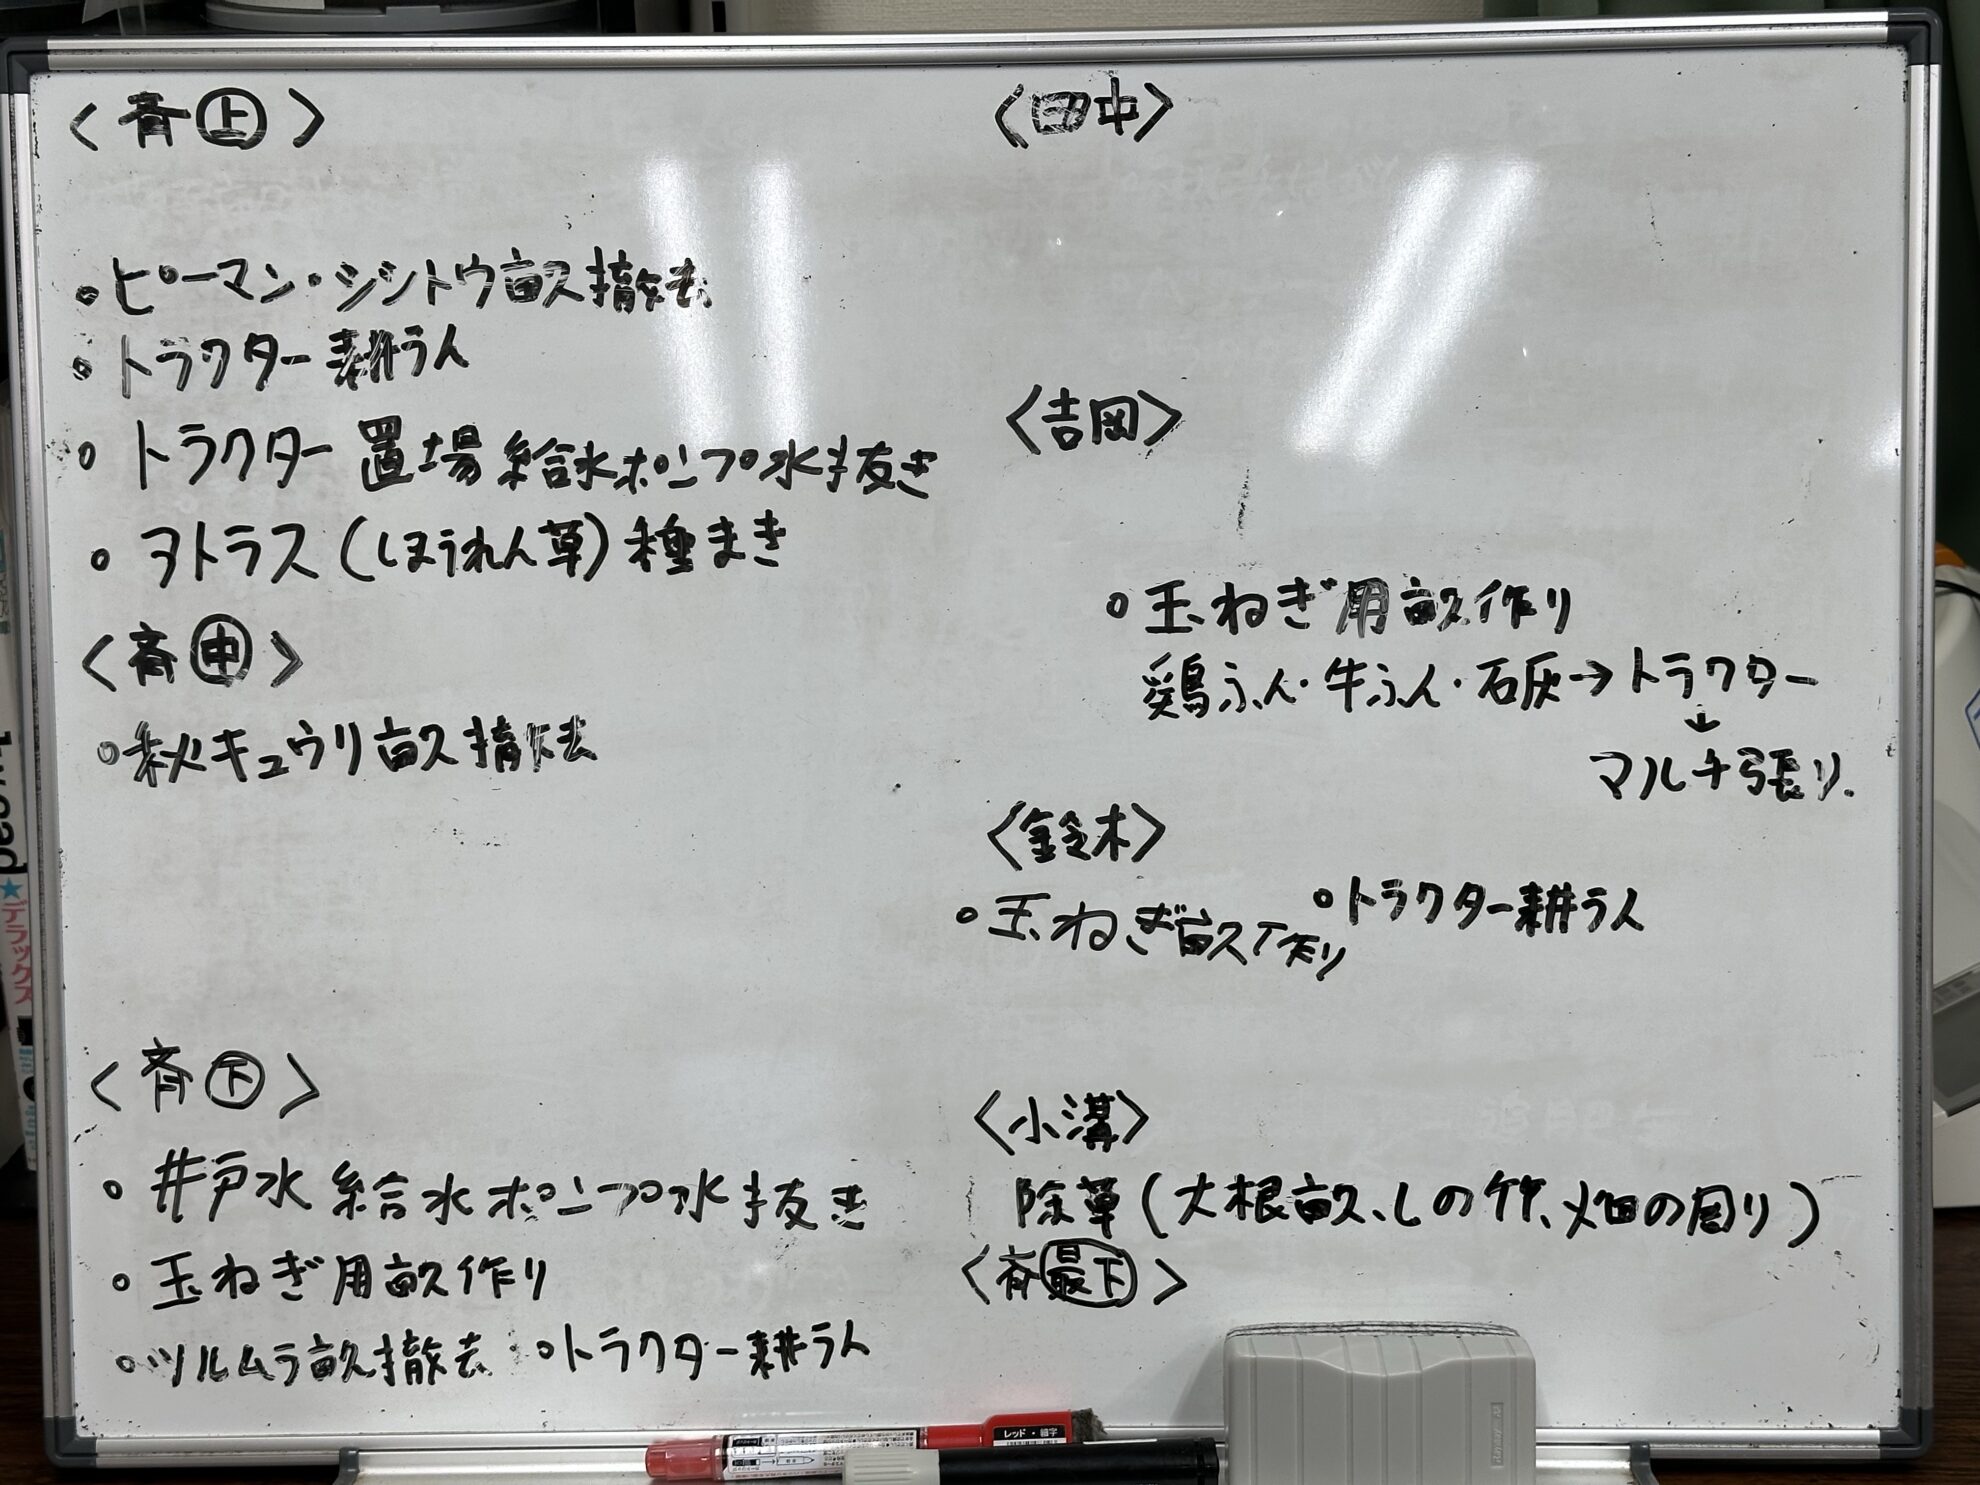 〈斉㊤〉
・ピーマン・シシトウ畝撤去
・トラクター耕うん
・トラクター置場給水ポンプ水抜き
・アトラス(ほうれん草)種まき
〈斉㊥〉
・秋キュウリ畝撤去
〈斉㊦〉
・井戸水給水ポンプ水抜き
・玉ねぎ用畝作り
・ツルムラ畝撤去 ・トラクター耕うん
〈田中〉
〈吉岡〉
・玉ねぎ用畝作り
鶏ふん・牛ふん・石灰→トラクター
↓
マルチ張り.
〈鈴木〉
・玉ねぎ畝作り ・トラクター耕うん
〈小溝〉
除草(大根畝、しの竹、畑の周り)
〈斉最下〉
レッド・細字
デラックス